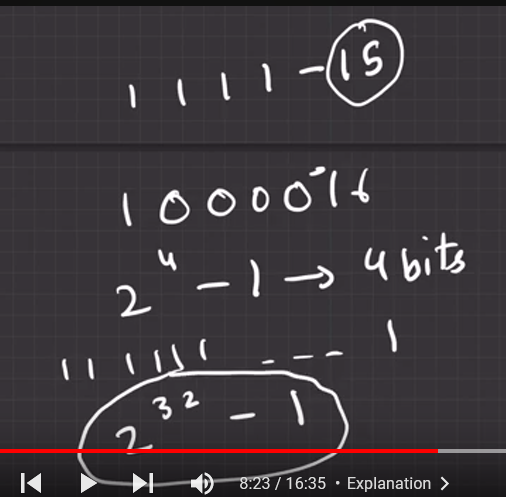 1 1 1 1 - 15
1 0 0 0 0 - 16
2^4 - 1 → 4 bits
1 1 1 1 1 1 1 - - - - 1
2^32 - 1
8:23 / 16:35 • Explanation >